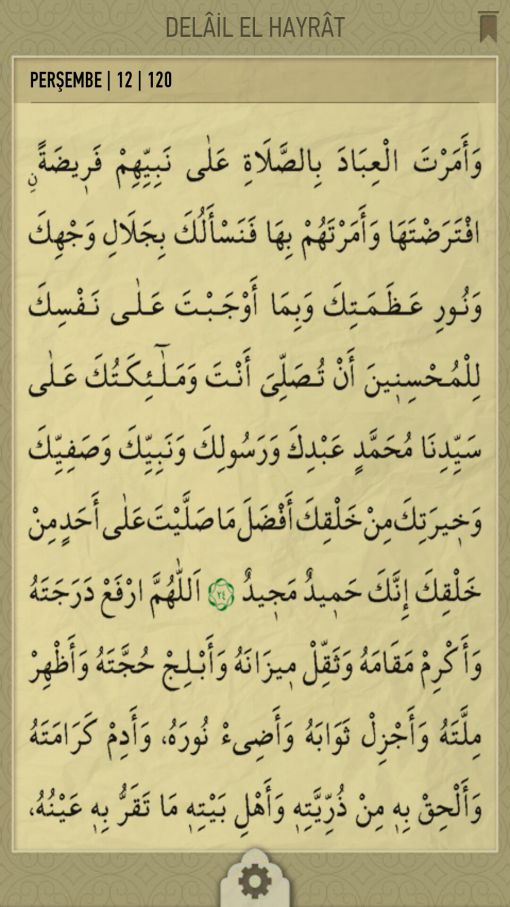 DELÂİL EL HAYRÂT
PERŞEMBE | 12 | 120
وَأَمَرْتَ الْعِبَادَ بِالصَّلَاةِ عَلٰى نَبِيِّهِمْ فَرِيضَةً
افْتَرَضْتَهَا وَأَمَرْتَهُمْ بِهَا فَنَسْأَلُكَ بِجَلَالِ وَجْهِكَ
وَنُورِ عَظَمَتِكَ وَبِمَا أَوْجَبْتَ عَلٰى نَفْسِكَ
لِلْمُحْسِنِينَ أَنْ تُصَلِّيَ أَنْتَ وَمَلٰٓئِكَتُكَ عَلٰى
سَيِّدِنَا مُحَمَّدٍ عَبْدِكَ وَرَسُولِكَ وَنَبِيِّكَ وَصَفِيِّكَ
وَخِيرَتِكَ مِنْ خَلْقِكَ أَفْضَلَ مَا صَلَّيْتَ عَلٰى أَحَدٍ مِنْ
خَلْقِكَ إِنَّكَ حَمِيدٌ مَجِيدٌ ٢٤ اَللّٰهُمَّ ارْفَعْ دَرَجَتَهُ
وَأَكْرِمْ مَقَامَهُ وَثَقِّلْ مِيزَانَهُ وَأَبْلِجْ حُجَّتَهُ وَأَظْهِرْ
مِلَّتَهُ وَأَجْزِلْ ثَوَابَهُ وَأَضِىءْ نُورَهُ، وَأَدِمْ كَرَامَتَهُ
وَأَلْحِقْ بِهِ مِنْ ذُرِّيَّتِهِ وَأَهْلِ بَيْتِهِ مَا تَقَرُّ بِهِ عَيْنُهُ،